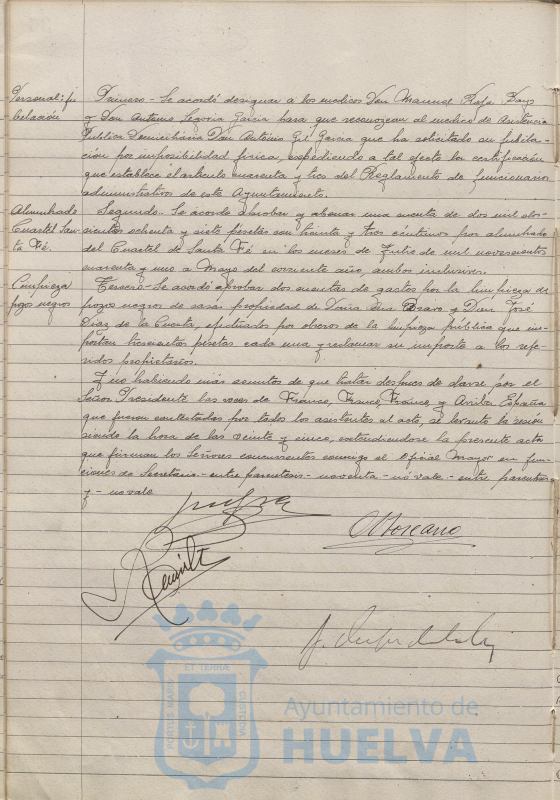 Personal: ju-
bilación
Primero.- Se acordó designar a los medicos Don Manuel Rofa Bayo
y Don Antonio Segovia Garcia para que reconozcan al medico de Asistencia
Publica Domiciliaria Don Antonio Gil Garcia que ha solicitado su jubila-
ción por imposibilidad fisica, expediendo a tal efecto la certificación
que establece el articulo cuarenta y tres del Reglamento de funcionarios
administrativos de este Ayuntamiento.
Alumbrado
Cuartel San-
ta Fé.
Segundo.- Se acordo aprobar y abonar una cuenta de dos mil dos-
cientos ochenta y siete pesetas con treinta y tres centimos por alumbrado
del Cuartel de Santa Fé en los meses de Julio de mil novecientos
cuarenta y uno a Mayo del corriente año, ambos inclusives.
Limpieza
pozos negros
Tercero.- Se acordó aprobar dos cuentas de gastos por la limpieza de
pozos negros de casas, propiedad de Doña Bravo y Don José
Diaz de la Cuesta, efectuados por obreros de la limpieza pública que im-
portan trescientas pesetas cada una y reclamar su importe a los refe-
ridos propietarios.
Y no habiendo más asuntos de que tratar despues de darse por el
Señor Presidente las voces de Franco, Franco, Franco, y Arriba España
que fueron contestadas por todos los asistentes al acto, se levantó la sesión
siendo la hora de las veinte y cinco, extendiendose la presente acta
que firman los Señores concurrentes conmigo el Oficial Mayor en fun-
ciones de Secretario.- entre parentesis - noventa - no vale.- entre parentesis
y - no vale
ET TERRÆ
PORTUS MARIS
CUSTODIA
Ayuntamiento de
HUELVA